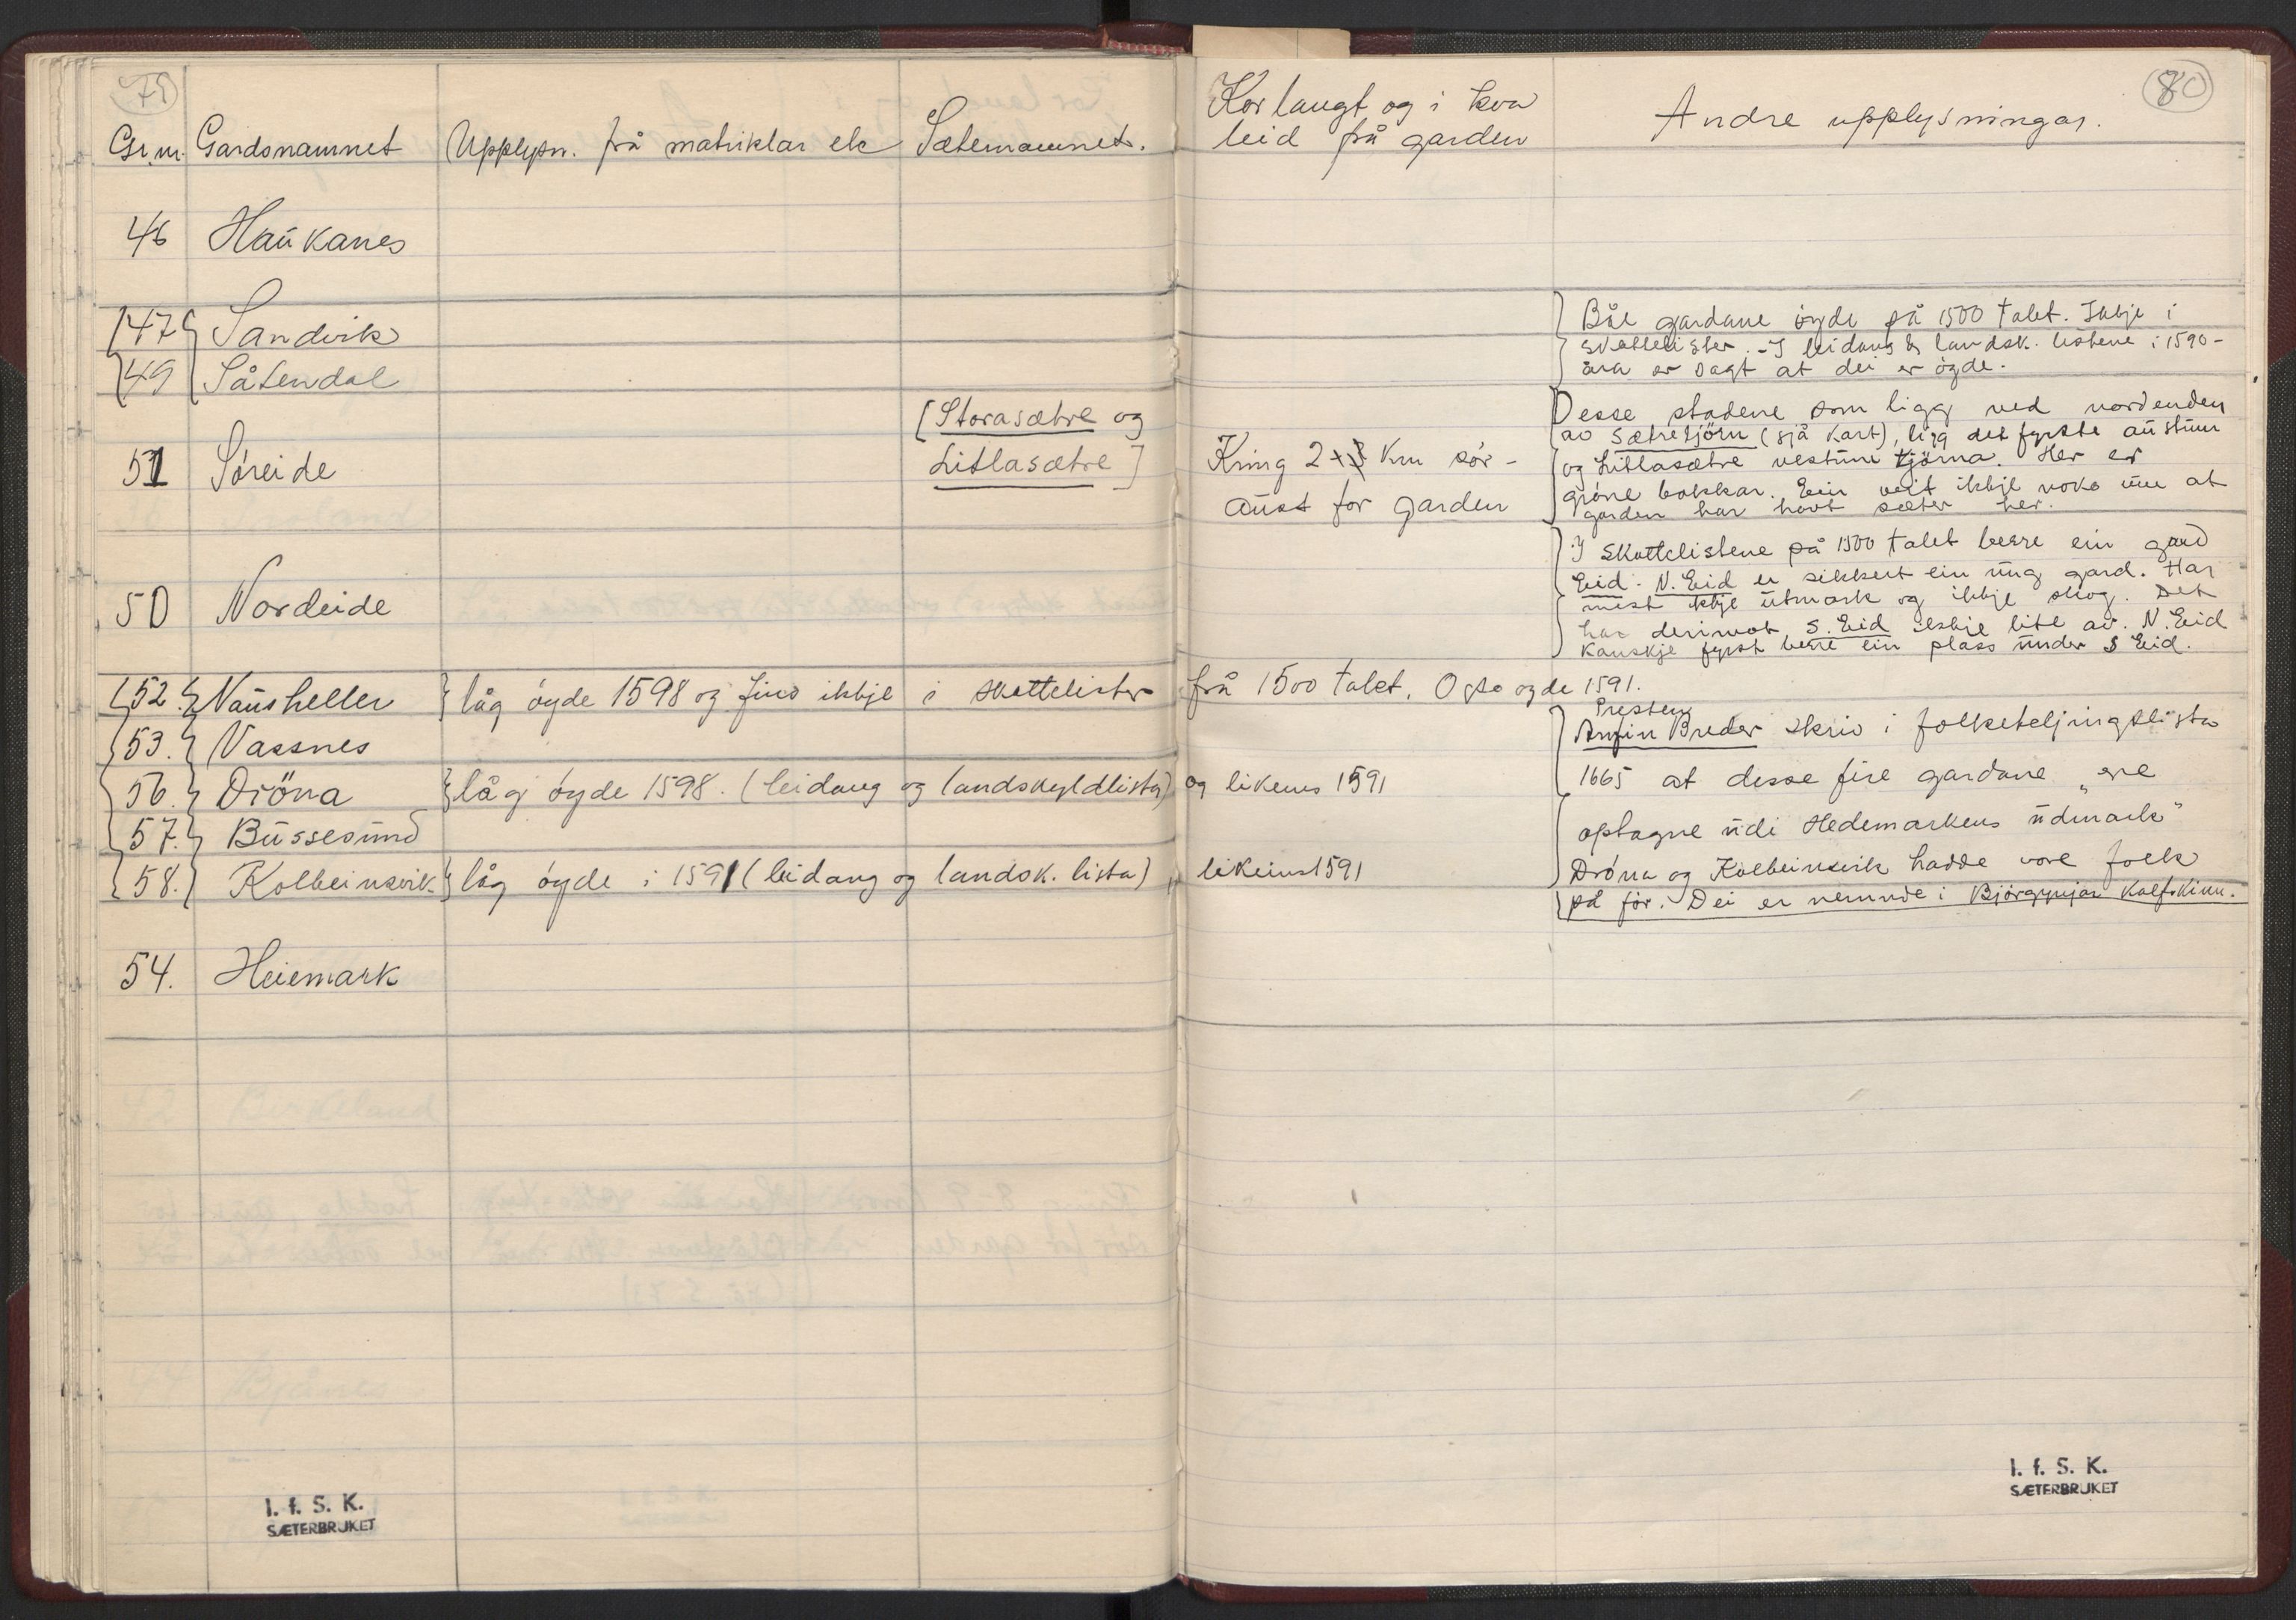 79
Gr.nr. Gardsnamnet Upplysn. frå matriklar etc Sæternamnet.
46 Haukanes
47 Sandvik
49 Såtendal
[Storasætre og
51 Søreide Litlasætre]
50 Nordeide
52. Nausheller låg øyde 1598 og fins ikkje i skattelister
53. Vassnes
56. Dröna låg øyde 1598. (leidang og landskyldlista)
57. Bussesund
58. Kolbeinsvik låg øyde i 1591 (leidang og landsk. lista),
54. Heiemark
I. f. S. K.
SÆTERBRUKET
80
Kor langt og i kva
leid frå garden Andre upplysningar.
Båe gardane øyde på 1500 talet. Ikkje i
skattelister. - I leidang & landsk. listene i 1590-
åra er sagt at dei er øyde.
Desse stadene som ligg ved nordenden
av Sætretjörn (sjå kart), ligg det fyrste austum
Kring 2 km sør- og Litlasætre vestum tjörna. Her er
aust for garden grøne bakkar. Ein veit ikkje noko um at
garden har havt sæter her.
I skattelistene på 1500 talet berre ein gard
Eid. N. Eid er sikkert ein ung gard. Har
mest ikkje utmark og ikkje skog. Det
har derimot S. Eid ikkje lite av. N. Eid
kanskje fyrst berre ein plass under S Eid.
frå 1500 talet. Også øyde 1591.
Presten
Anfin Breder skriv i folketeljingslista
og likeins 1591 1665 at desse fire gardane "ere
optagne udi Hedemarkens udmark"
likeins 1591 Dröna og Kolbeinsvik hadde vore folk
på før. Dei er nemnde i Björgynjar Kalfskinn.
I. f. S. K.
SÆTERBRUKET